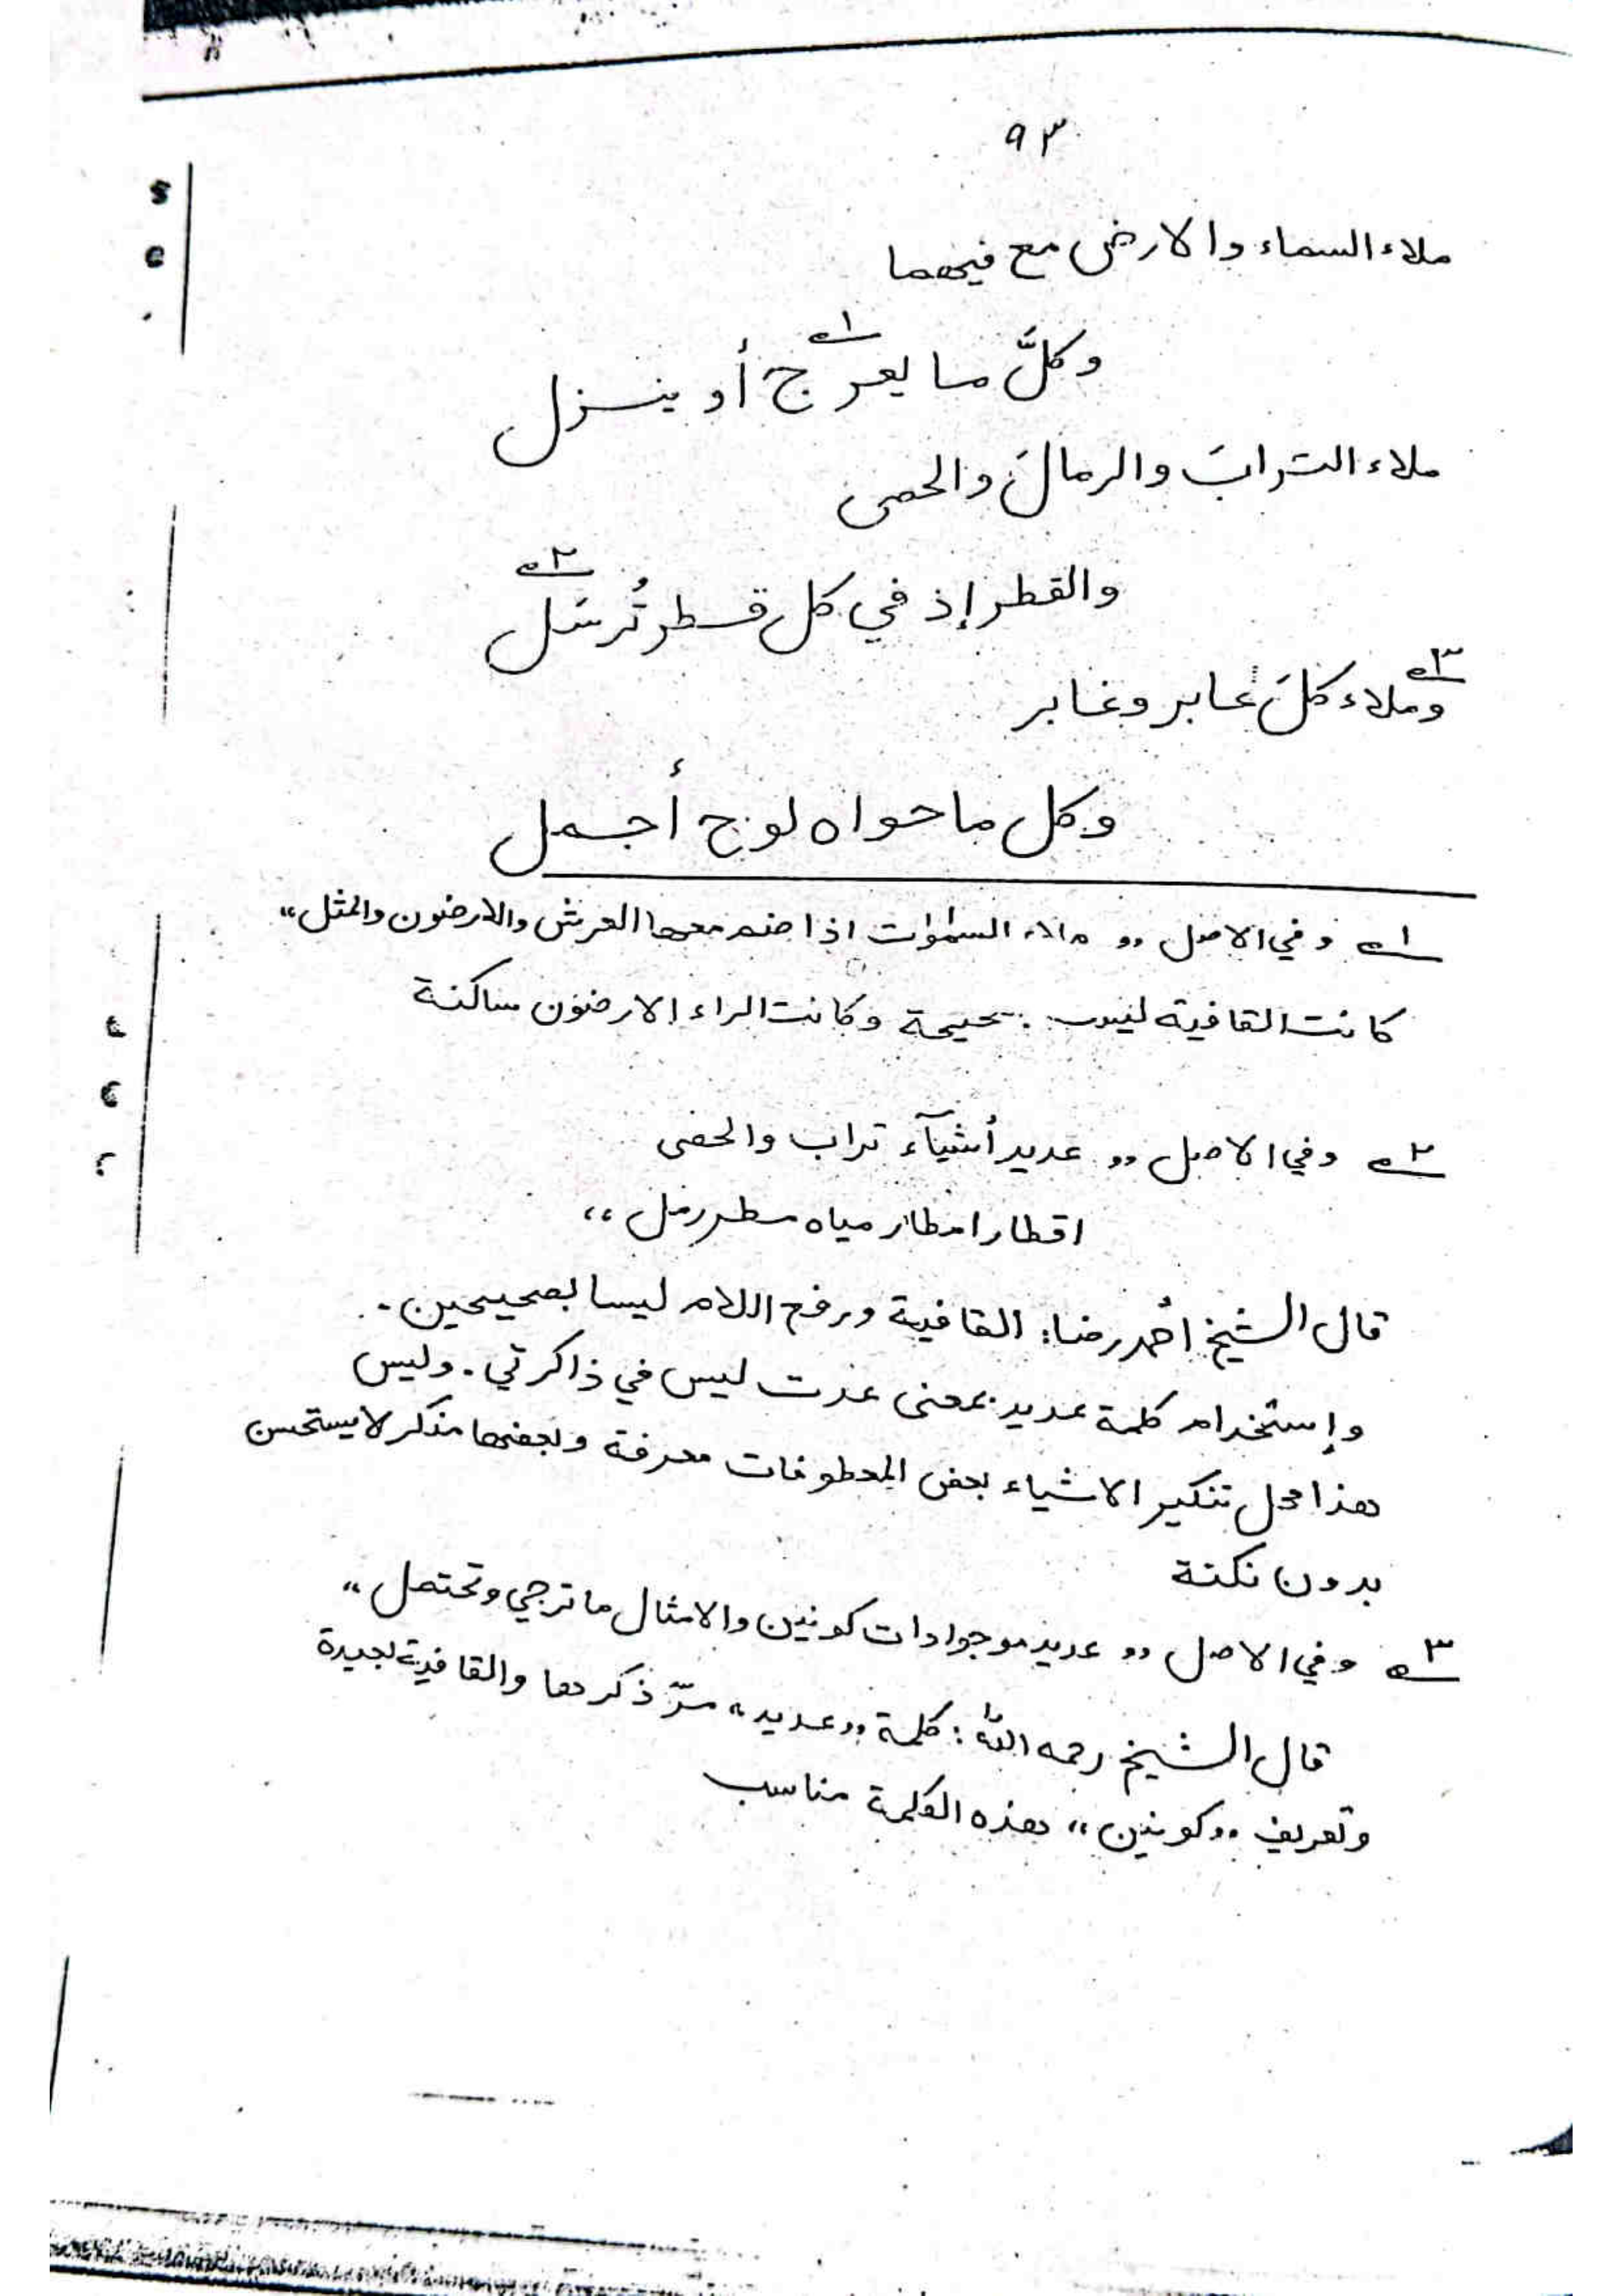 ٩٣
ملاء السماء والارض مع فيهما
وكلَّ ما يعرج أو ينزل ١
ملاء الترابَ والرمالَ والحصى
والقطر إذ في كل قسطر تُرسَل ٢
٣ وملاء كلَ عابر وغابر
وكل ما حواه لوح أجمل
١ وفي الاصل ،، ملاء السمٰوٰت اذا ضم معها العرش والارضون والمثل“
كانت القافية ليست صحيحة وكانت الراء الارضون ساكنة
٢ وفي الاصل ،، عديد أشيآء تراب والحصى
اقطار امطار مياه سطر رمل ،،
قال الشيخ أحمد رضا: القافية ورفع اللام ليسا بصحيحين.
وإستخدام كلمة عديد بمعنى عدت ليس في ذاكرتي. وليس
هذا محل تنكير الاشياء بعض المعطوفات معرفة وبعضها مذكر لا يستحسن
بدون نكتة
٣ وفي الاصل ،، عديد موجوادات كونين والامثال ما ترجي وتحتمل“
قال الشيخ رحمه الله: كلمة ،،عديد“ مرّ ذكرها والقافية بعيدة
وتعريف ،،كونين“ هذه الكلمة مناسب